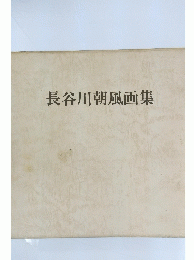 長谷川朝風画集